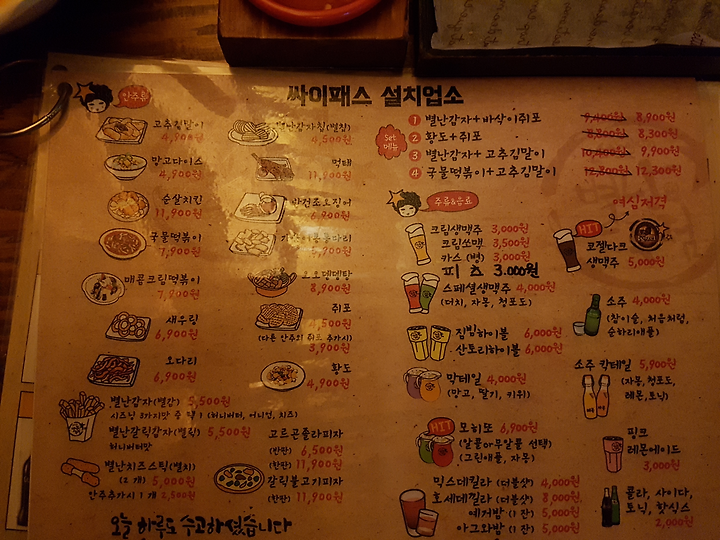 싸이패스 설치업소
안주류
고추김말이
4,900원
망고다이스
4,900원
순살치킨
11,900원
국물떡볶이
7,900원
매콤크림떡볶이
7,900원
새우링
6,900원
오다리
6,900원
별난감자칩(별칩)
4,500원
먹태
11,900원
6,900원
오오뎅뎅탕
8,900원
쥐포
4,500원
(다른 안주와 쥐포 추가시)
3,900원
황도
4,900원
별난감자(별감) 5,500원
시즈닝 3가지맛 중 택 1 (허니버터, 어니언, 치즈)
별난갈릭감자(별릭) 5,500원
허니버터맛
별난치즈스틱(별치)
(2개) 5,000원
안주추가시 1개 2,500원
고르곤졸라피자
(반판) 6,500원
(한판) 11,900원
갈릭불고기피자
(한판) 11,900원
오늘 하루도 수고하셨습니다
Set 메뉴
1 별난감자+바삭이쥐포 9,400원 8,900원
2 황도+쥐포 8,800원 8,300원
3 별난감자+고추김말이 10,400원 9,900원
4 국물떡볶이+고추김말이 12,800원 12,300원
주류&음료
크림생맥주 3,000원
크림쏘맥 3,500원
카스 (병) 3,000원
피츠 3,000원
스페셜생맥주 4,000원
(더치, 자몽, 청포도)
짐빔하이볼 6,000원
산토리하이볼 6,000원
막테일 4,000원
(망고, 딸기, 키위)
HIT 모히또 6,900원
(알콜or무알콜 선택)
(그린애플, 자몽)
믹스데킬라 (더블샷) 4,000원
호세데낄라 (더블샷) 8,000원
예거밤 (1잔) 5,000원
아그와밤 (1잔) 5,000원
여심저격
HIT
코젤다크
생맥주 5,000원
소주 4,000원
(참이슬, 처음처럼,
순하리애플)
소주 칵테일 5,900원
(자몽, 청포도,
레몬, 토닉)
핑크
레몬에이드
3,000원
콜라, 사이다,
토닉, 핫식스
2,000원